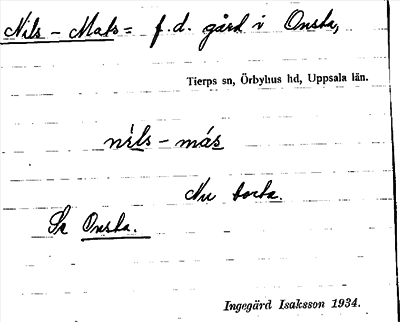 Nils-Mats= f.d. gård i Onsta,
Tierps sn, Örbyhus hd, Uppsala län.
nils-más
Nu borta.
Se Onsta.
Ingegärd Isaksson 1934.